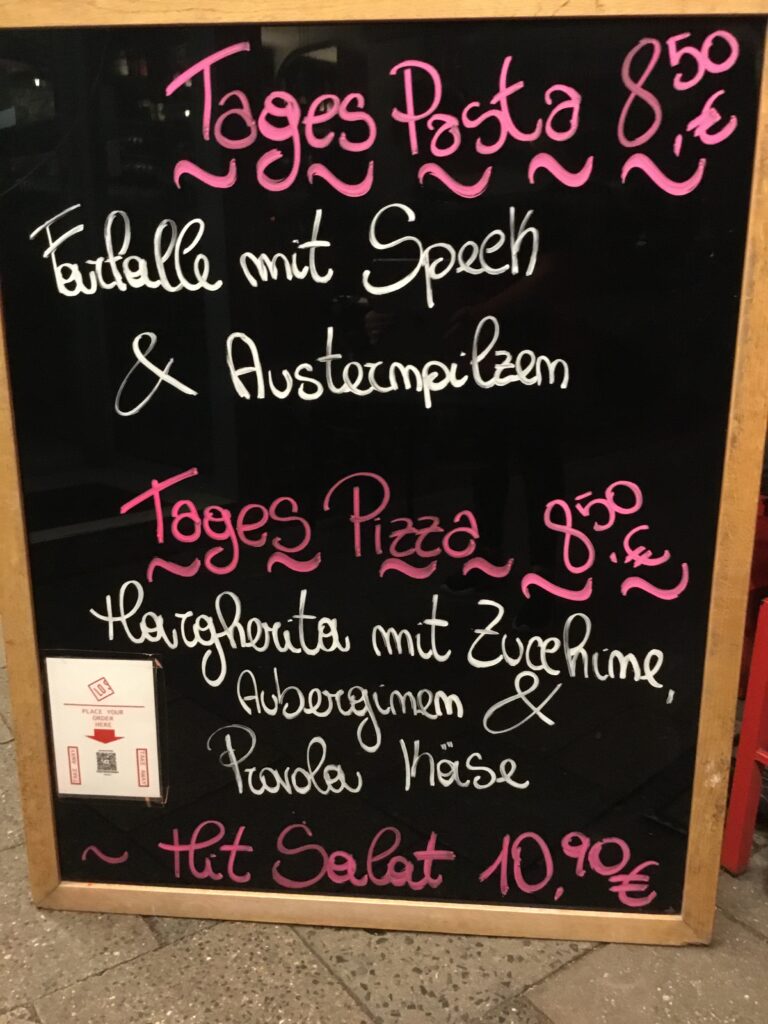 Tages Pasta 8,50 €
Farfalle mit Speck
& Austernpilzen
Tages Pizza 8,50 €
Margherita mit Zucchine,
Auberginen &
Provola Käse
~ Mit Salat 10,90 €
PLACE YOUR
ORDER
HERE
TAKE AWAY